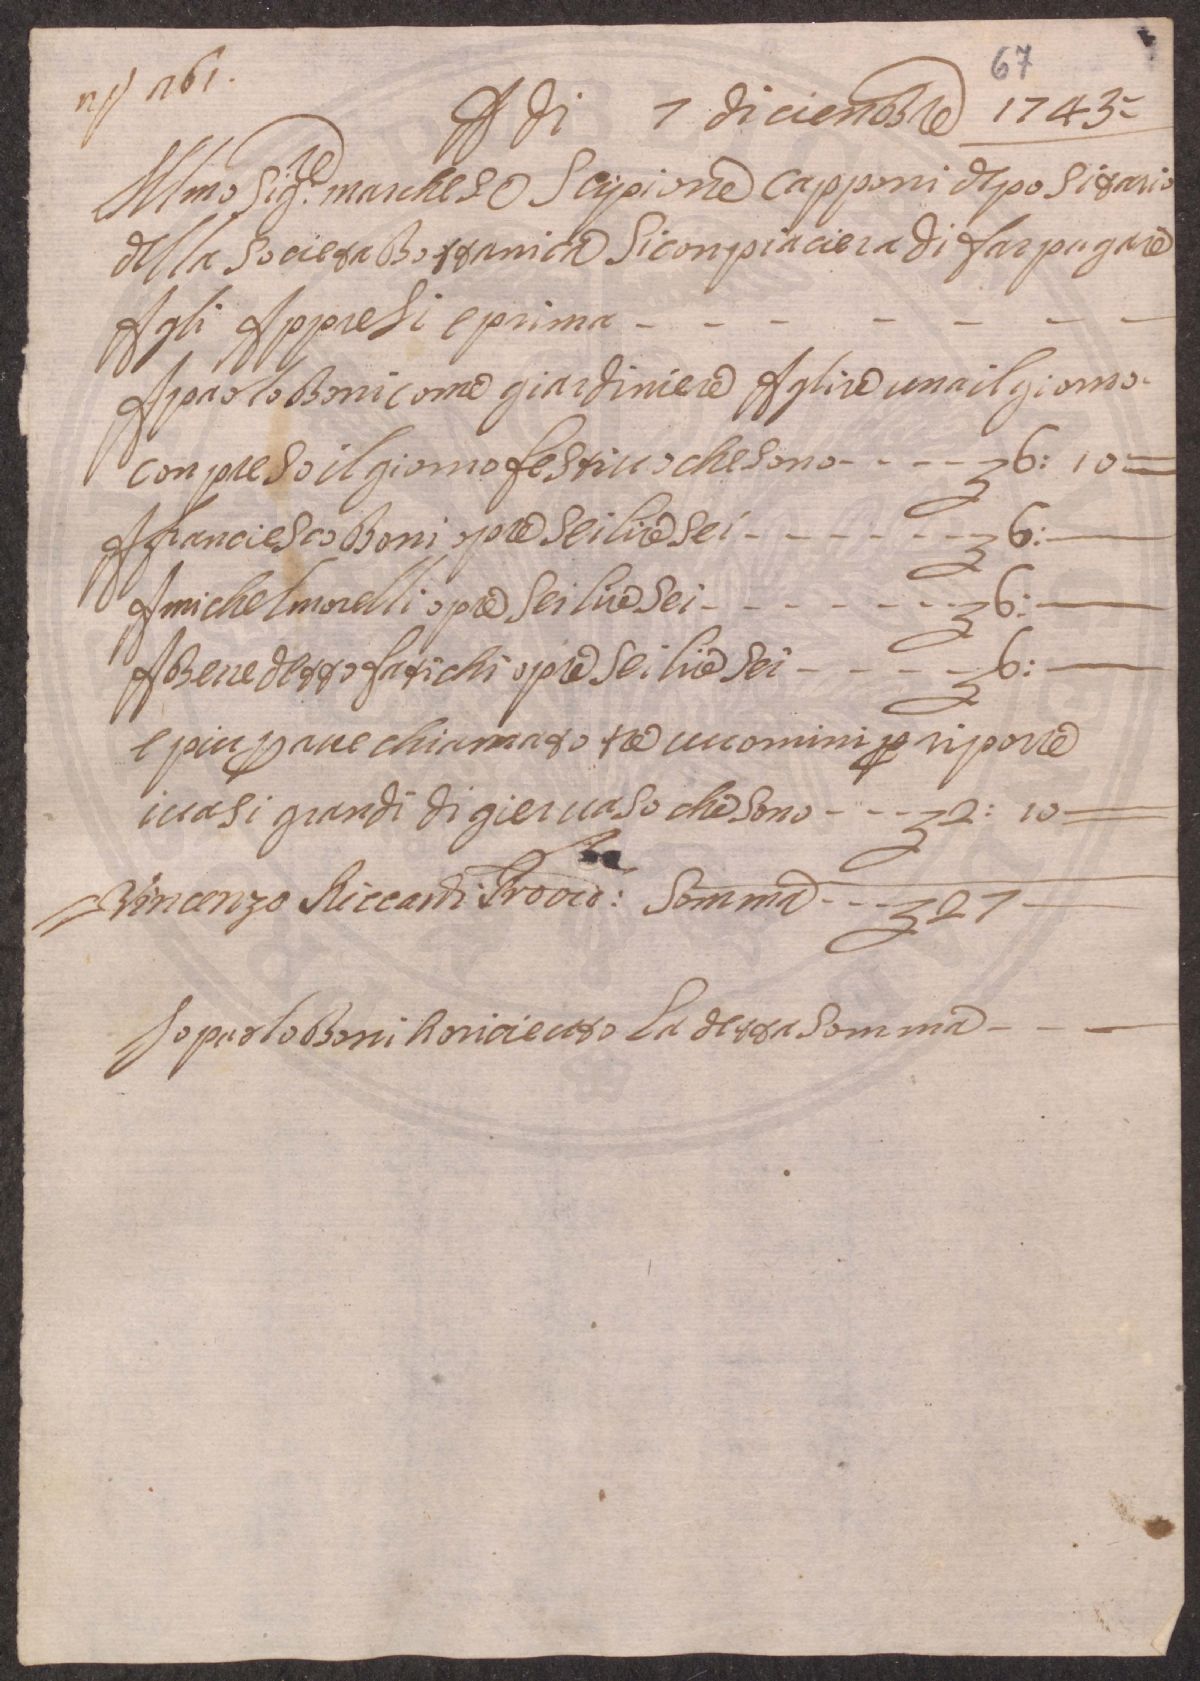 n° 161.
67
A di 7 diciembre 1743
Illmo Sigre marchese Scipione Capponi depositario
della Societa Bottanica Si conpiaciera di far pagare
Agli Appresi e prima - - - - - - -
A paolo Boni come giardiniere A lire una il giorno
conpreso il giorno festivo che sono - - - - £ 6: 10
A franciesco Boni opre sei lire sei - - - - - - £ 6:
A michel morelli opre sei lire sei - - - - - - £ 6:
A Benedetto fatichi opre sei lire sei - - - - £ 6:
e piu p ave chiamato tre uuomini p riporre
i uasi grandi di gieruaso che sono - - - £ 2: 10
Vincenzo Riccardi Provv: Somma - - - £ 27
Io paolo Boni ho riceuto La detta Somma - - -